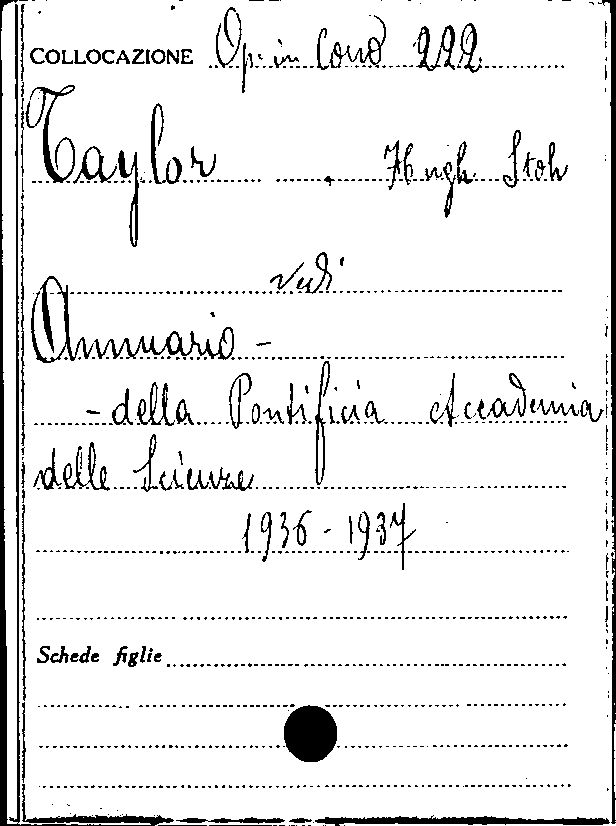 COLLOCAZIONE Op. in Cons 222
Taylor , Hugh Stoh
vedi
Annuario -
- della Pontificia Accademia
delle Scienze
1936 - 1937
Schede figlie